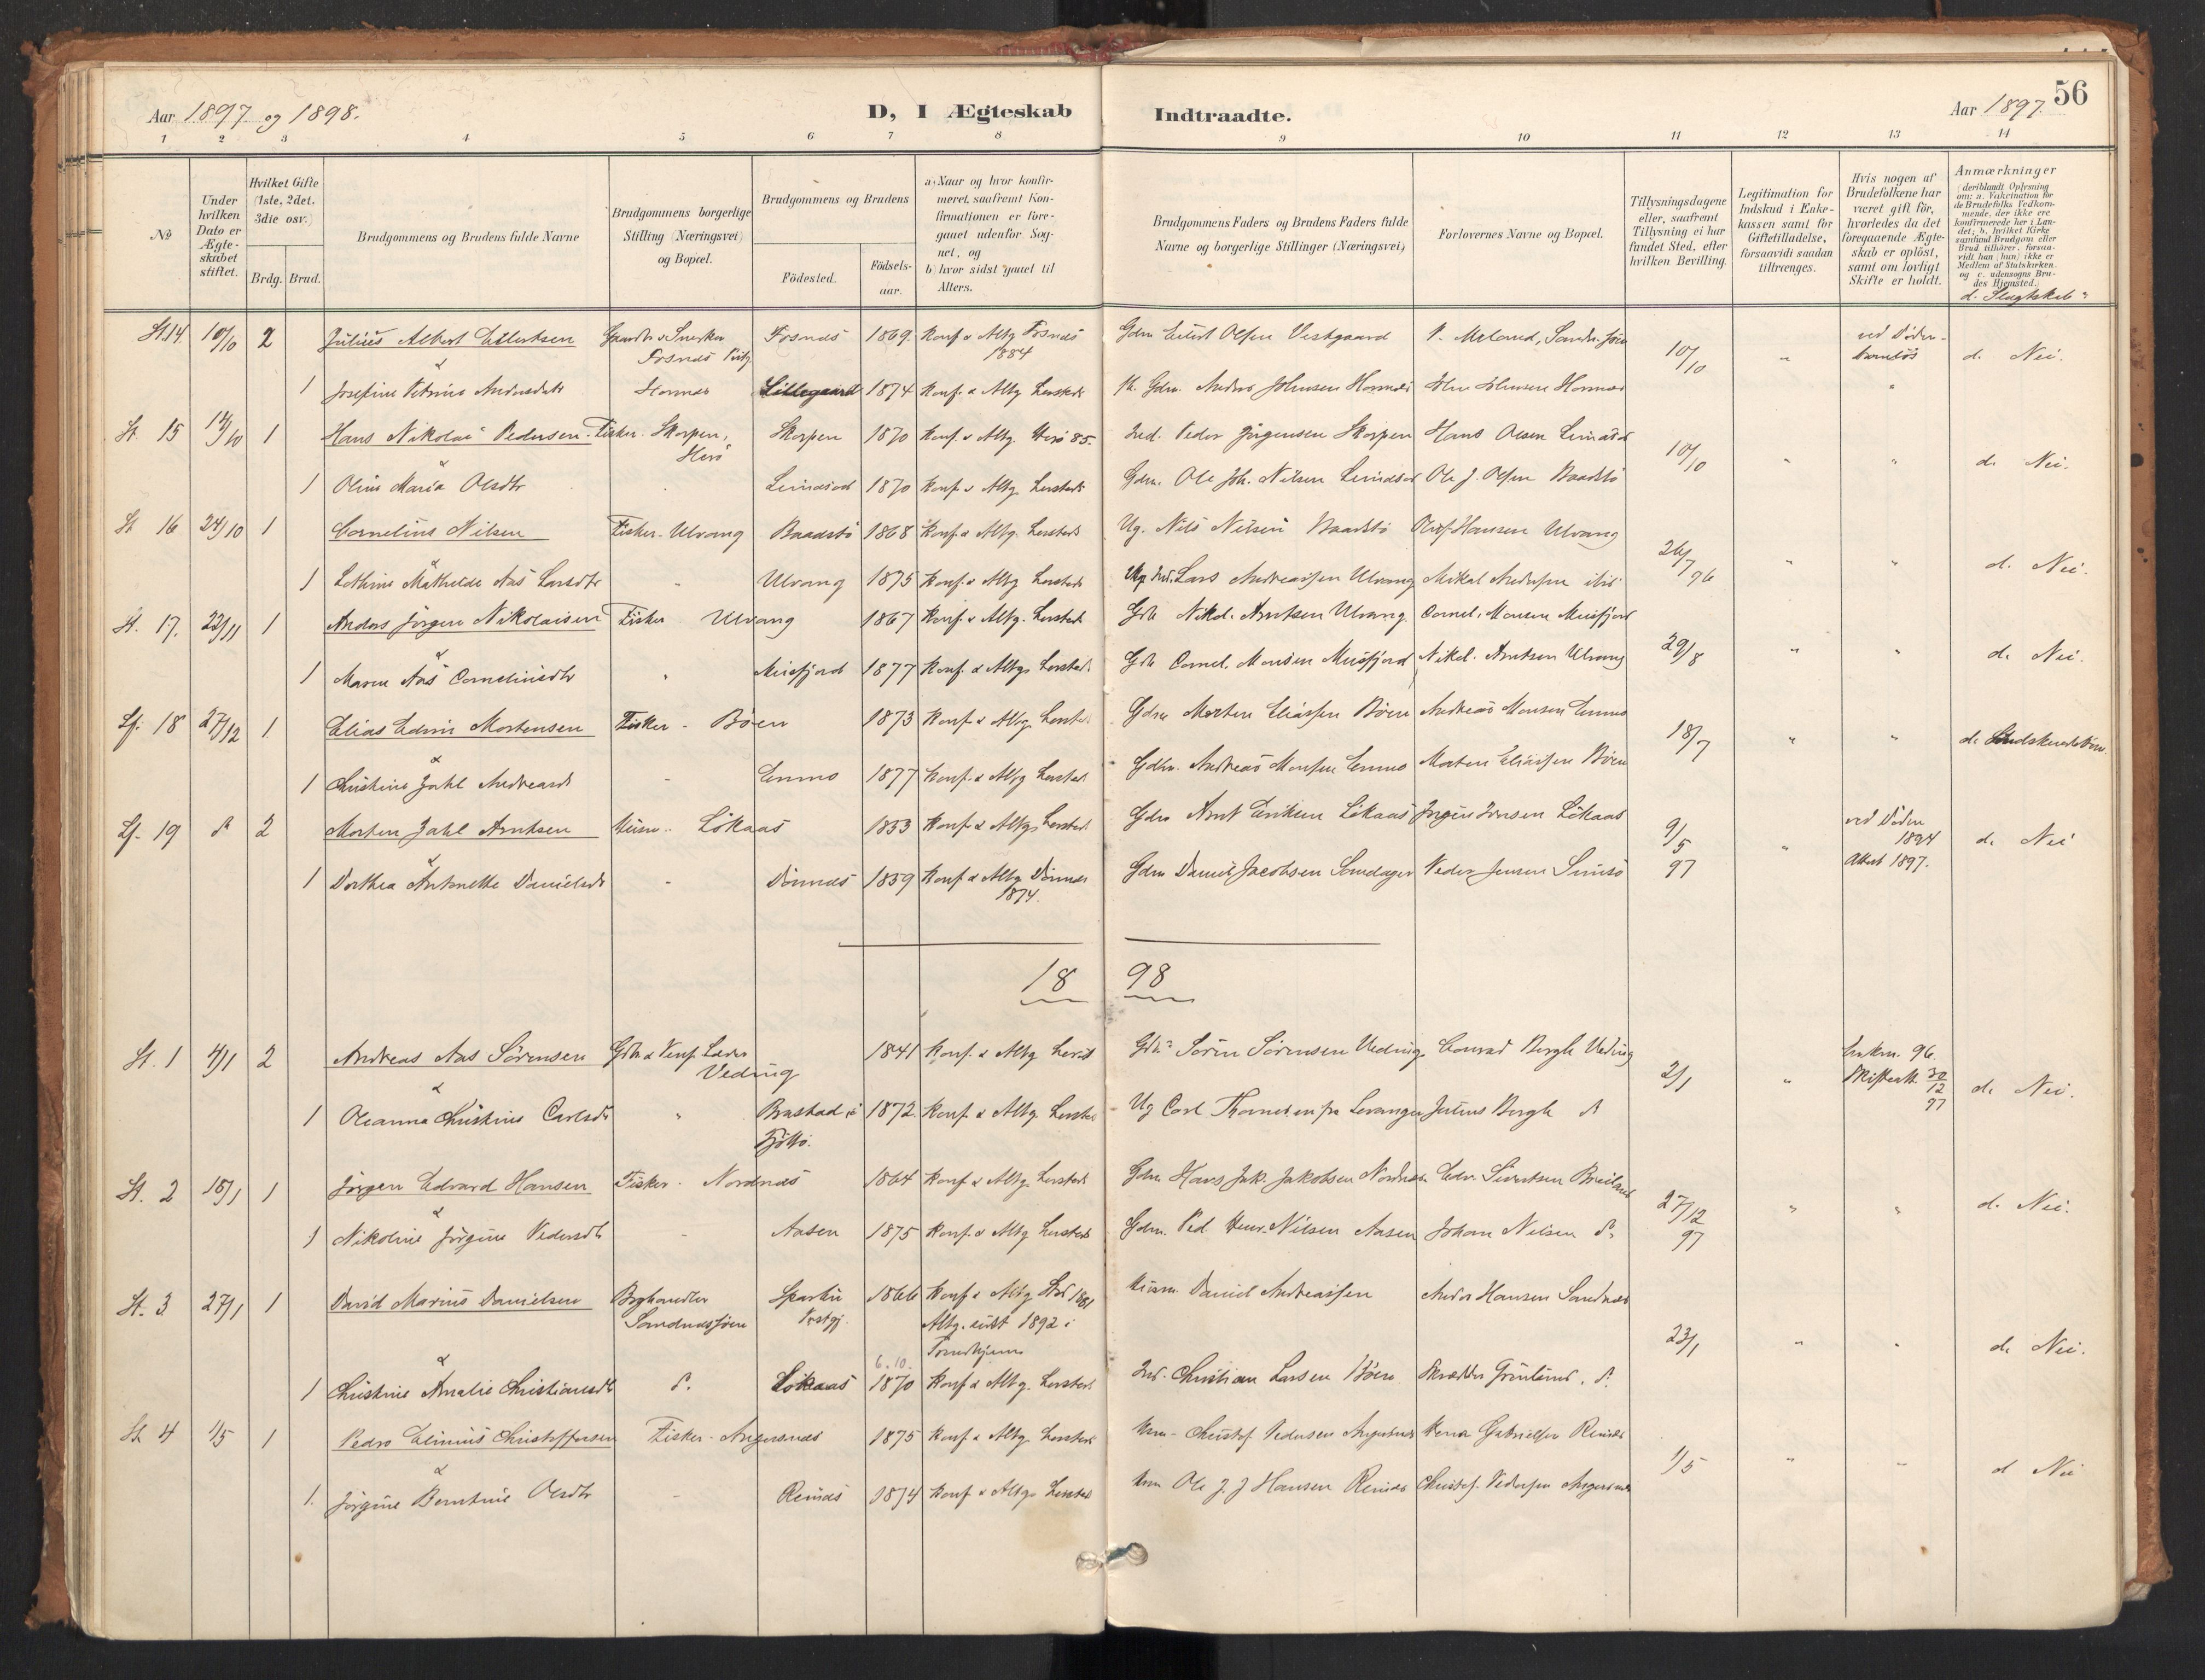 56
Aar 1897 og 1898.
D, I Ægteskab
Indtraadte.
Aar 1897.
1 2 3 4 5 6 7 8 9 10 11 12 13 14
№
Under hvilken Dato er Ægteskabet stiftet.
Hvilket Gifte (1ste, 2det, 3die osv.)
Brdg. Brud.
Brudgommens og Brudens fulde Navne
Brudgommens borgerlige Stilling (Næringsvei) og Bopæl.
Brudgommens og Brudens
Födested.
Födselsaar.
a) Naar og hvor konfirmeret, saafremt Konfirmationen er foregaaet udenfor Sognet, og
b) hvor sidst gaaet til Alters.
Brudgommens Faders og Brudens Faders fulde Navne og borgerlige Stillinger (Næringsvei)
Forlovernes Navne og Bopæl.
Tillysningsdagene eller, saafremt Tillysning ei har fundet Sted, efter hvilken Bevilling.
Legitimation for Indskud i Enkekassen samt for Giftetilladelse, forsaavidt saadan tiltrænges.
Hvis nogen af Brudefolkene har været gift för, hvorledes da det foregaaende Ægteskab er oplöst, samt om lovligt Skifte er holdt.
Anmærkninger (deriblandt Oplysning om: a. Vakcination for de Brudefolks Vedkommende, der ikke ere konfirmerede her i Landet; b. hvilket Kirkesamfund Brudgom eller Brud tilhörer, forsaavidt han (hun) ikke er Medlem af Statskirken. og c. udensogns Brudes Hjemsted.
d. Slægtskab
St. 14. 10/10 2 Julius Albert Ellertsen Fosnæs 1869. Konf. & Altg Fosnæs 1884 Gdm Eilert Olsen Vestgaard 10/10 " ved Döden d. Nei.
1 Josefine Petrine Andersdtr Hornæs 1874 Konf. & Altg Hersteds Gdm. Anders Johnsen Hornæs John Johnsen Hornæs
St 15 1 Hans Nikolai Pedersen Fisker. Skorpen, Herö Skorpen 1870 Konf. & Altg. Herö 85. Ind. Peder Jörgensen Skorpen Hans Olsen 10/10 " " d. Nei.
1 Oline Maria Olsdtr 1870 Konf. & Altg. Hersteds Gdm. Ole Joh. Nilsen Ole J. Olsen Baadstö
St 16 24/10 1 Cornelius Nilsen Fisker. Ulvang Baadstö 1868 Konf. & Altg. Hersteds Ug. Nils Nilsen Baadstö Olaf Hansen Ulvang 26/7 96 " " d. Nei.
1 Mathilde Aas Larsdtr " Ulvang 1875 Konf. & Altg Hersteds Lars Andreassen Ulvang Mikal Andersen ibid
St. 17. 23/11 1 Anders Jörgen Nikolaisen Fisker Ulvang 1867 Konf. & Altg. Hersteds Nikol. Arntsen Ulvang. Cornel. Monsen Meisfjord 29/8 " " d. Nei.
1 Maren Aas Corneliusdtr " Meisfjord 1877 Konf. & Altg. Herstds Cornel. Monsen Meisfjord Nikol. Arntsen Ulvang
Lf. 18 27/12 1. Elias Edvin Mortensen Fisker - Böen 1873 Konf. & Altg. Herstds Gdm Morten Eliassen Böen Andreas Monsen Enmo 18/7 " " d. Södskendebörn.
1 Christine Zahl Andreasdt - Enmo 1877 Konf. & Altg Herstds Gdm. Andreas Monsen Enmo Morten Eliassen Böen
Lf. 19 d. 2 Morten Zahl Arntsen Husm. Lökaas 1853 Konf. & Altg Herstds Gdm Arnt Eriksen Lökaas Jörgen Jensen Lökaas 9/5 97 " ved Döden 1894 Attest 1897. d. Nei
1 Dorthea Antonette Danielsdt - Dönnæs 1859 Konf. & Altg Dönnæs 1874. Gdm Daniel Jacobsen Peder Jensen
18 98
St. 1 4/1 2 Andreas Aas Sörensen Veding 1841 Konf. & Altg herst Sören Sörensen Veding Conrad Bergh Veding 2/1 " 96. 30/12 97 d. Nei.
1 Oleanna Christine Carlsdt " Brastad i Tjöttö. 1872. Konf. & Altg. Hersteds Ug Carl fra Levanger Julius Bergh d.
St. 2 15/1 1 Jörgen Edvard Hansen Fisker - Nordnæs 1864 Konf. & Altg. Herstds Gdm. Hans Jak. Jakobsen Nordnæs Edv. Sivertsen Breiland 27/12 97 " " d. Nei.
1 Nikoline Jörgine Pedersdt - Aasen 1875 Konf. & Altg Herstds Gdm. Ped. Henr. Nilsen Aasen Johan Nilsen d.
St. 3 27/1 1 David Marius Danielsen Boghandler Sandnæsjöen Sparbu Prstgj. 1866 Konf. & Altg 1881 Altg. sidst 1892 i Trondhjem Husm. Daniel Andreassen Anders Hansen Sandnæs 23/1 " " d. Nei.
6.10.
1 Christine Amalie Christiansdt d. Lökaas 1870 Konf. & Altg. Herstds Ind. Christian Larsen Böen Skrædder Grönlund. d.
St. 4 1/5 1 Pedro Elimius Christoffersen Fisker - Angersnæs 1875 Konf. & Altg. Herstds Christof. Pedersen Angersnæs Gabrielsen Reinæs 1/5 " - d Nei
1. Jörgine Berntine Olsdtr - Reinæs 1874 Konf. & Altg. Herstds Ole J. J Hansen Reinæs Christof. Pedersen Angersnæs